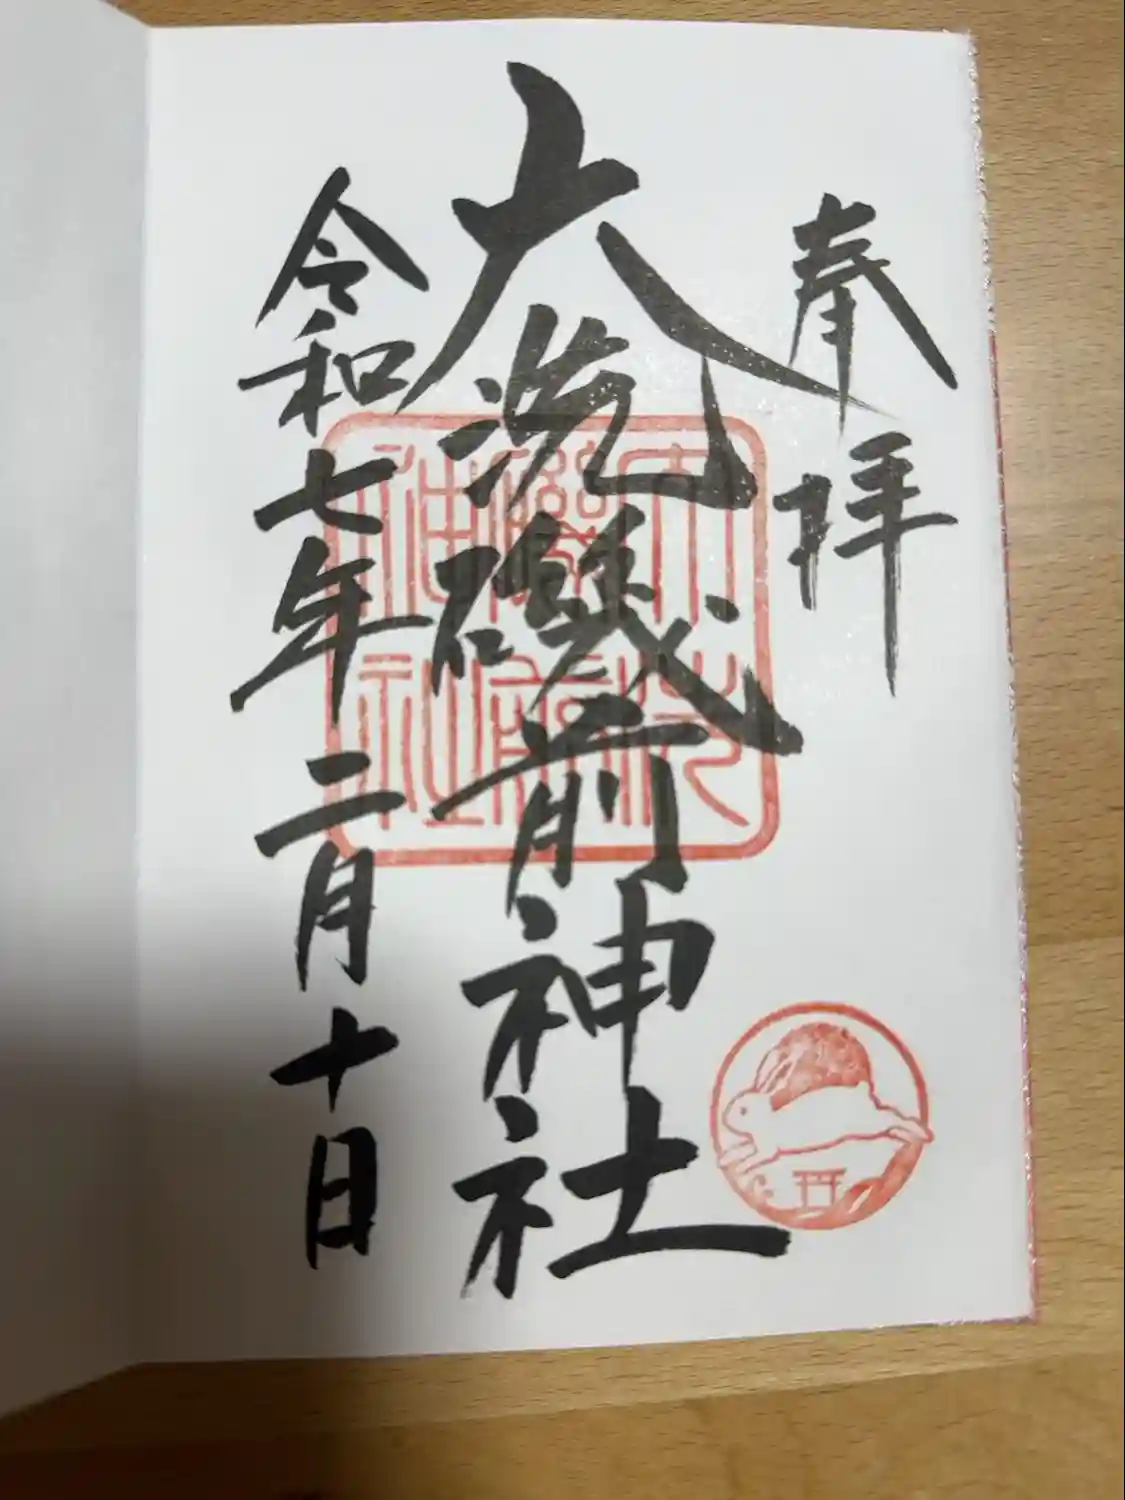 奉拝
大洗磯前神社
令和七年二月十日
大洗
磯前
神社